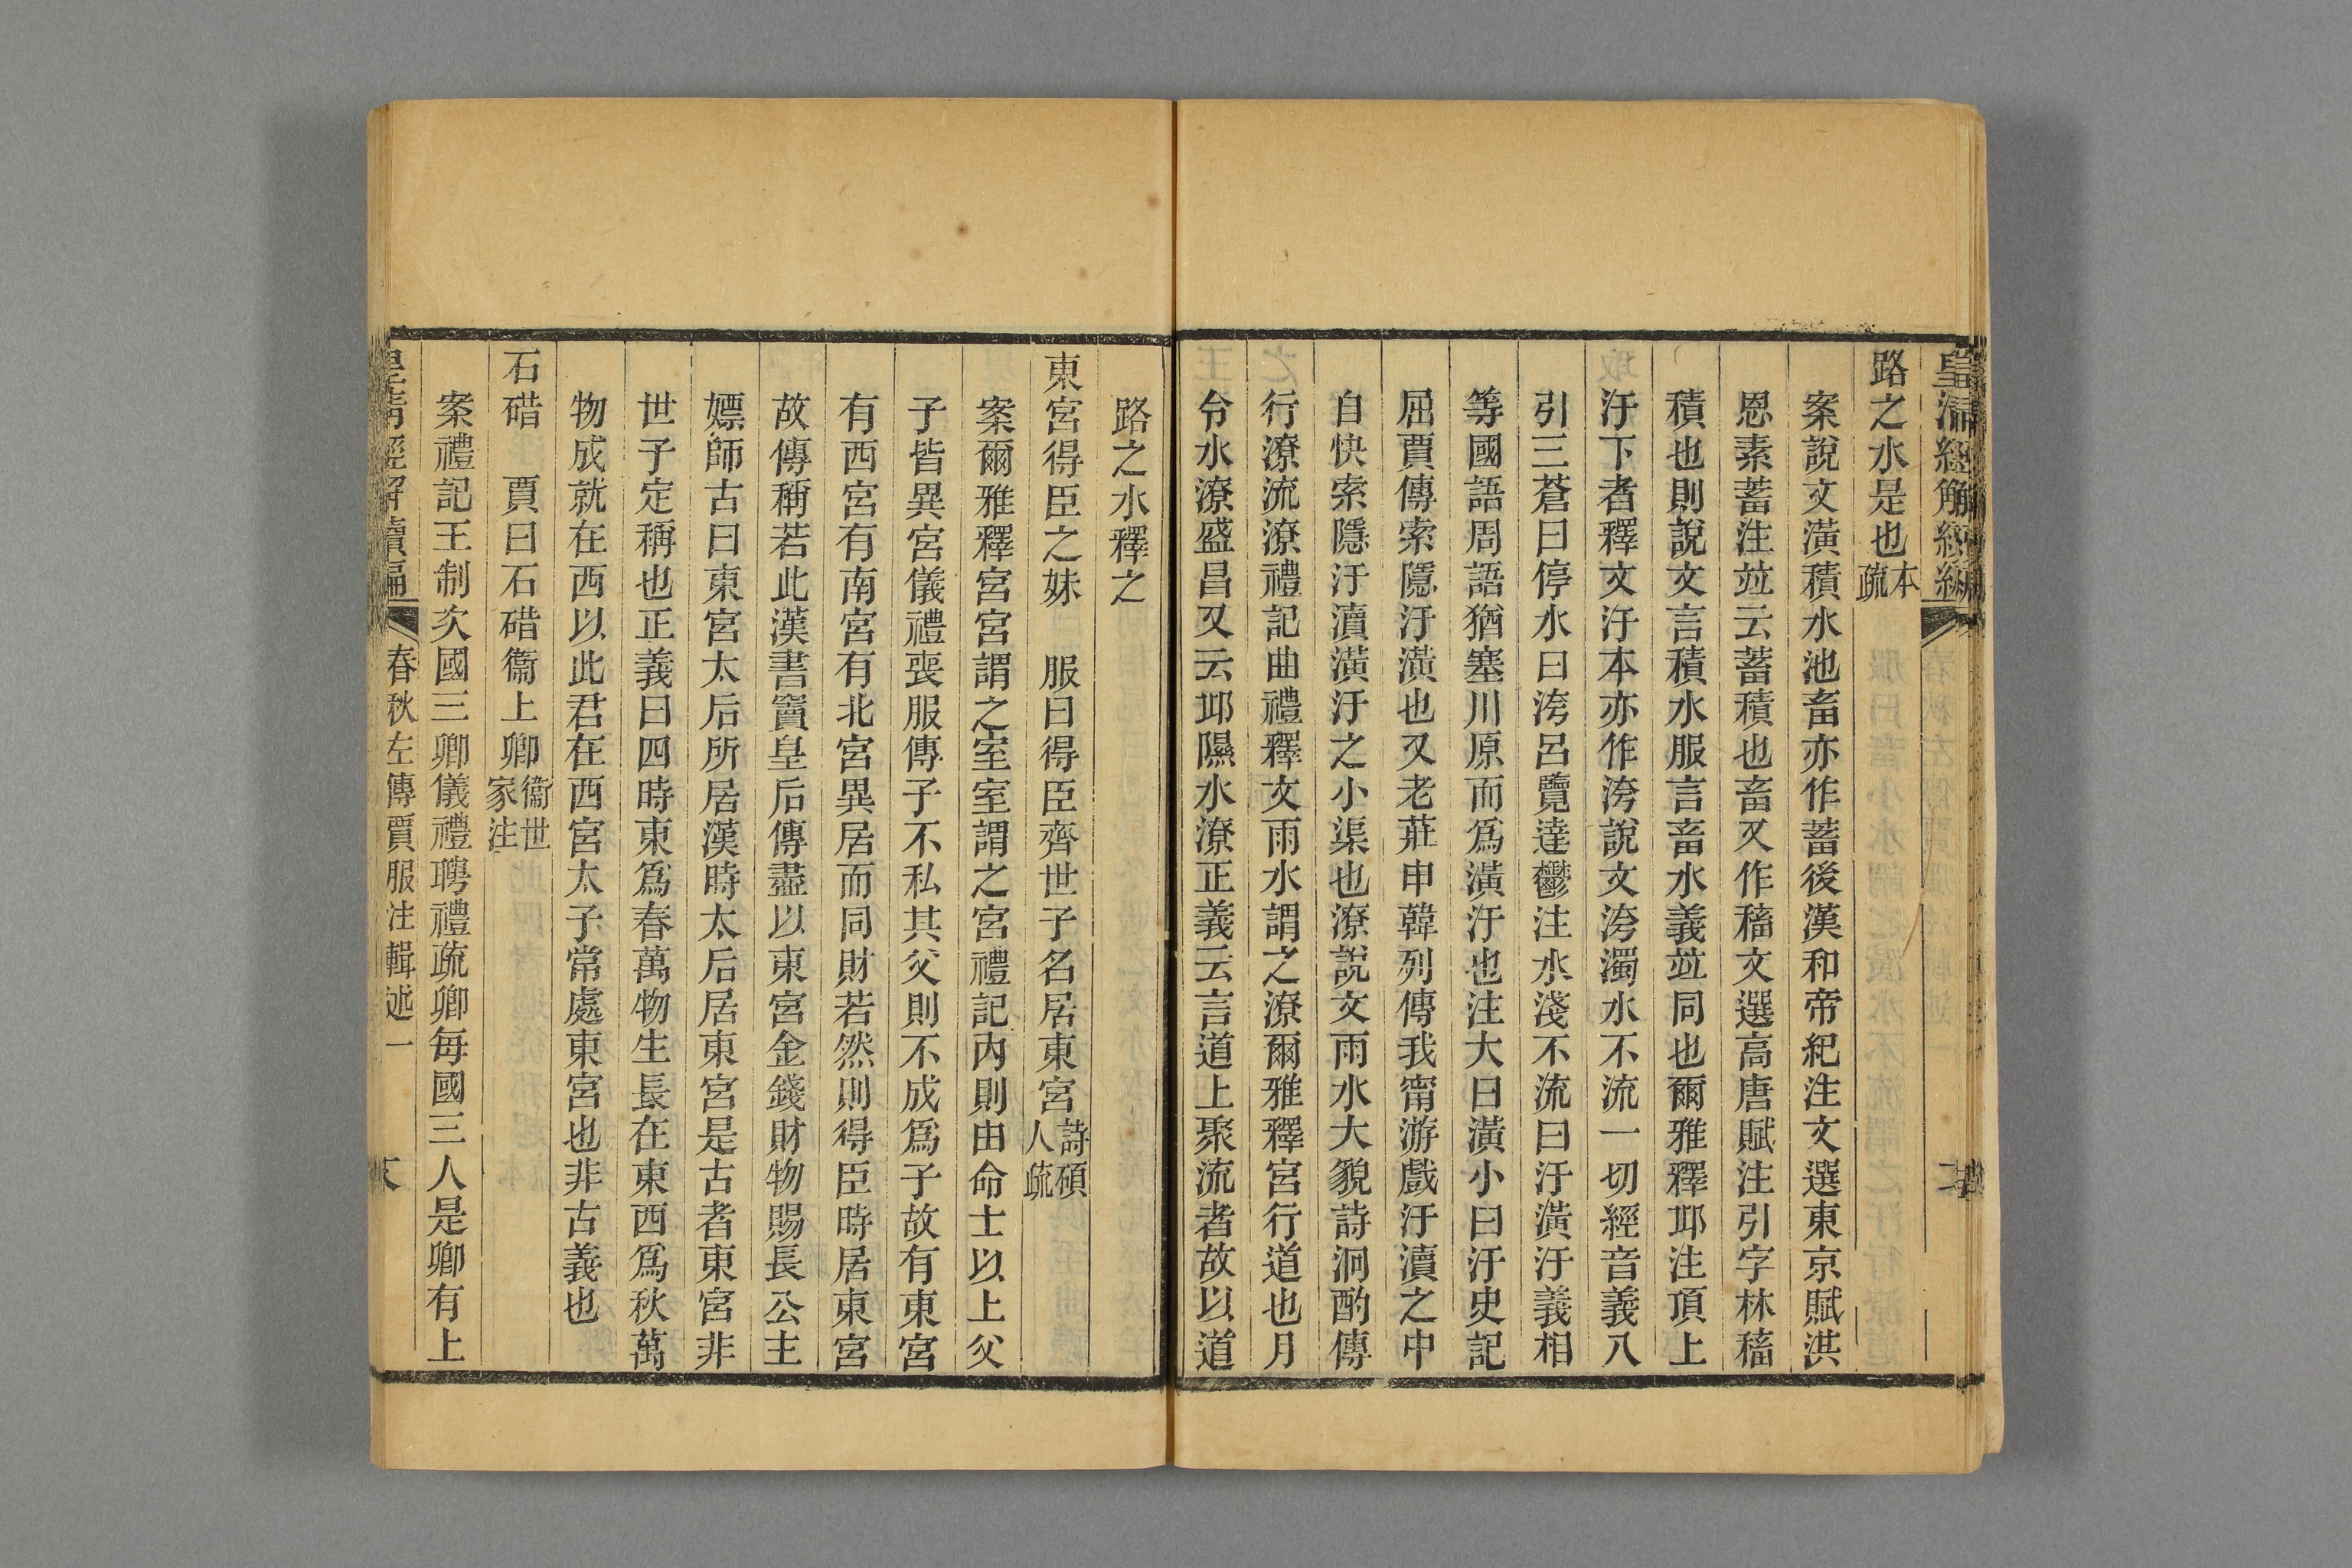 路之水是也本疏
案說文潢積水池畜亦作蓄後漢和帝紀注文選東京賦淇
恩素蓄注竝云蓄積也畜又作稸文選高唐賦注引字林稸
積也則說文言積水服言畜水義竝同也爾雅釋邱注頂上
汙下者釋文汙本亦作洿說文洿濁水不流一切經音義八
引三蒼曰停水曰洿呂覽達鬱注水淺不流曰汙潢汙義相
等國語周語猶塞川原而爲潢汙也注大曰潢小曰汙史記
屈賈傳索隱汙潢也又老莊申韓列傳我甯游戲汙瀆之中
自快索隱汙瀆潢汙之小渠也潦說文雨水大貌詩泂酌傳
行潦流潦禮記曲禮釋文雨水謂之潦爾雅釋宮行道也月
令水潦盛昌又云邱隰水潦正義云言道上聚流者故以道
路之水釋之
東宮得臣之妹　服曰得臣齊世子名居東宮詩碩人疏
案爾雅釋宮宮謂之室室謂之宮禮記內則由命士以上父
子皆異宮儀禮喪服傳子不私其父則不成爲子故有東宮
有西宮有南宮有北宮異居而同財若然則得臣時居東宮
故傳稱若此漢書竇皇后傳盡以東宮金錢財物賜長公主
嫖師古曰東宮太后所居漢時太后居東宮是古者東宮非
世子定稱也正義曰四時東爲春萬物生長在東西爲秋萬
物成就在西以此君在西宮太子常處東宮也非古義也
石碏　賈曰石碏衞上卿衞世家注
案禮記王制次國三卿儀禮聘禮疏卿每國三人是卿有上
皇清經解續編　春秋左傳賈服注輯述一